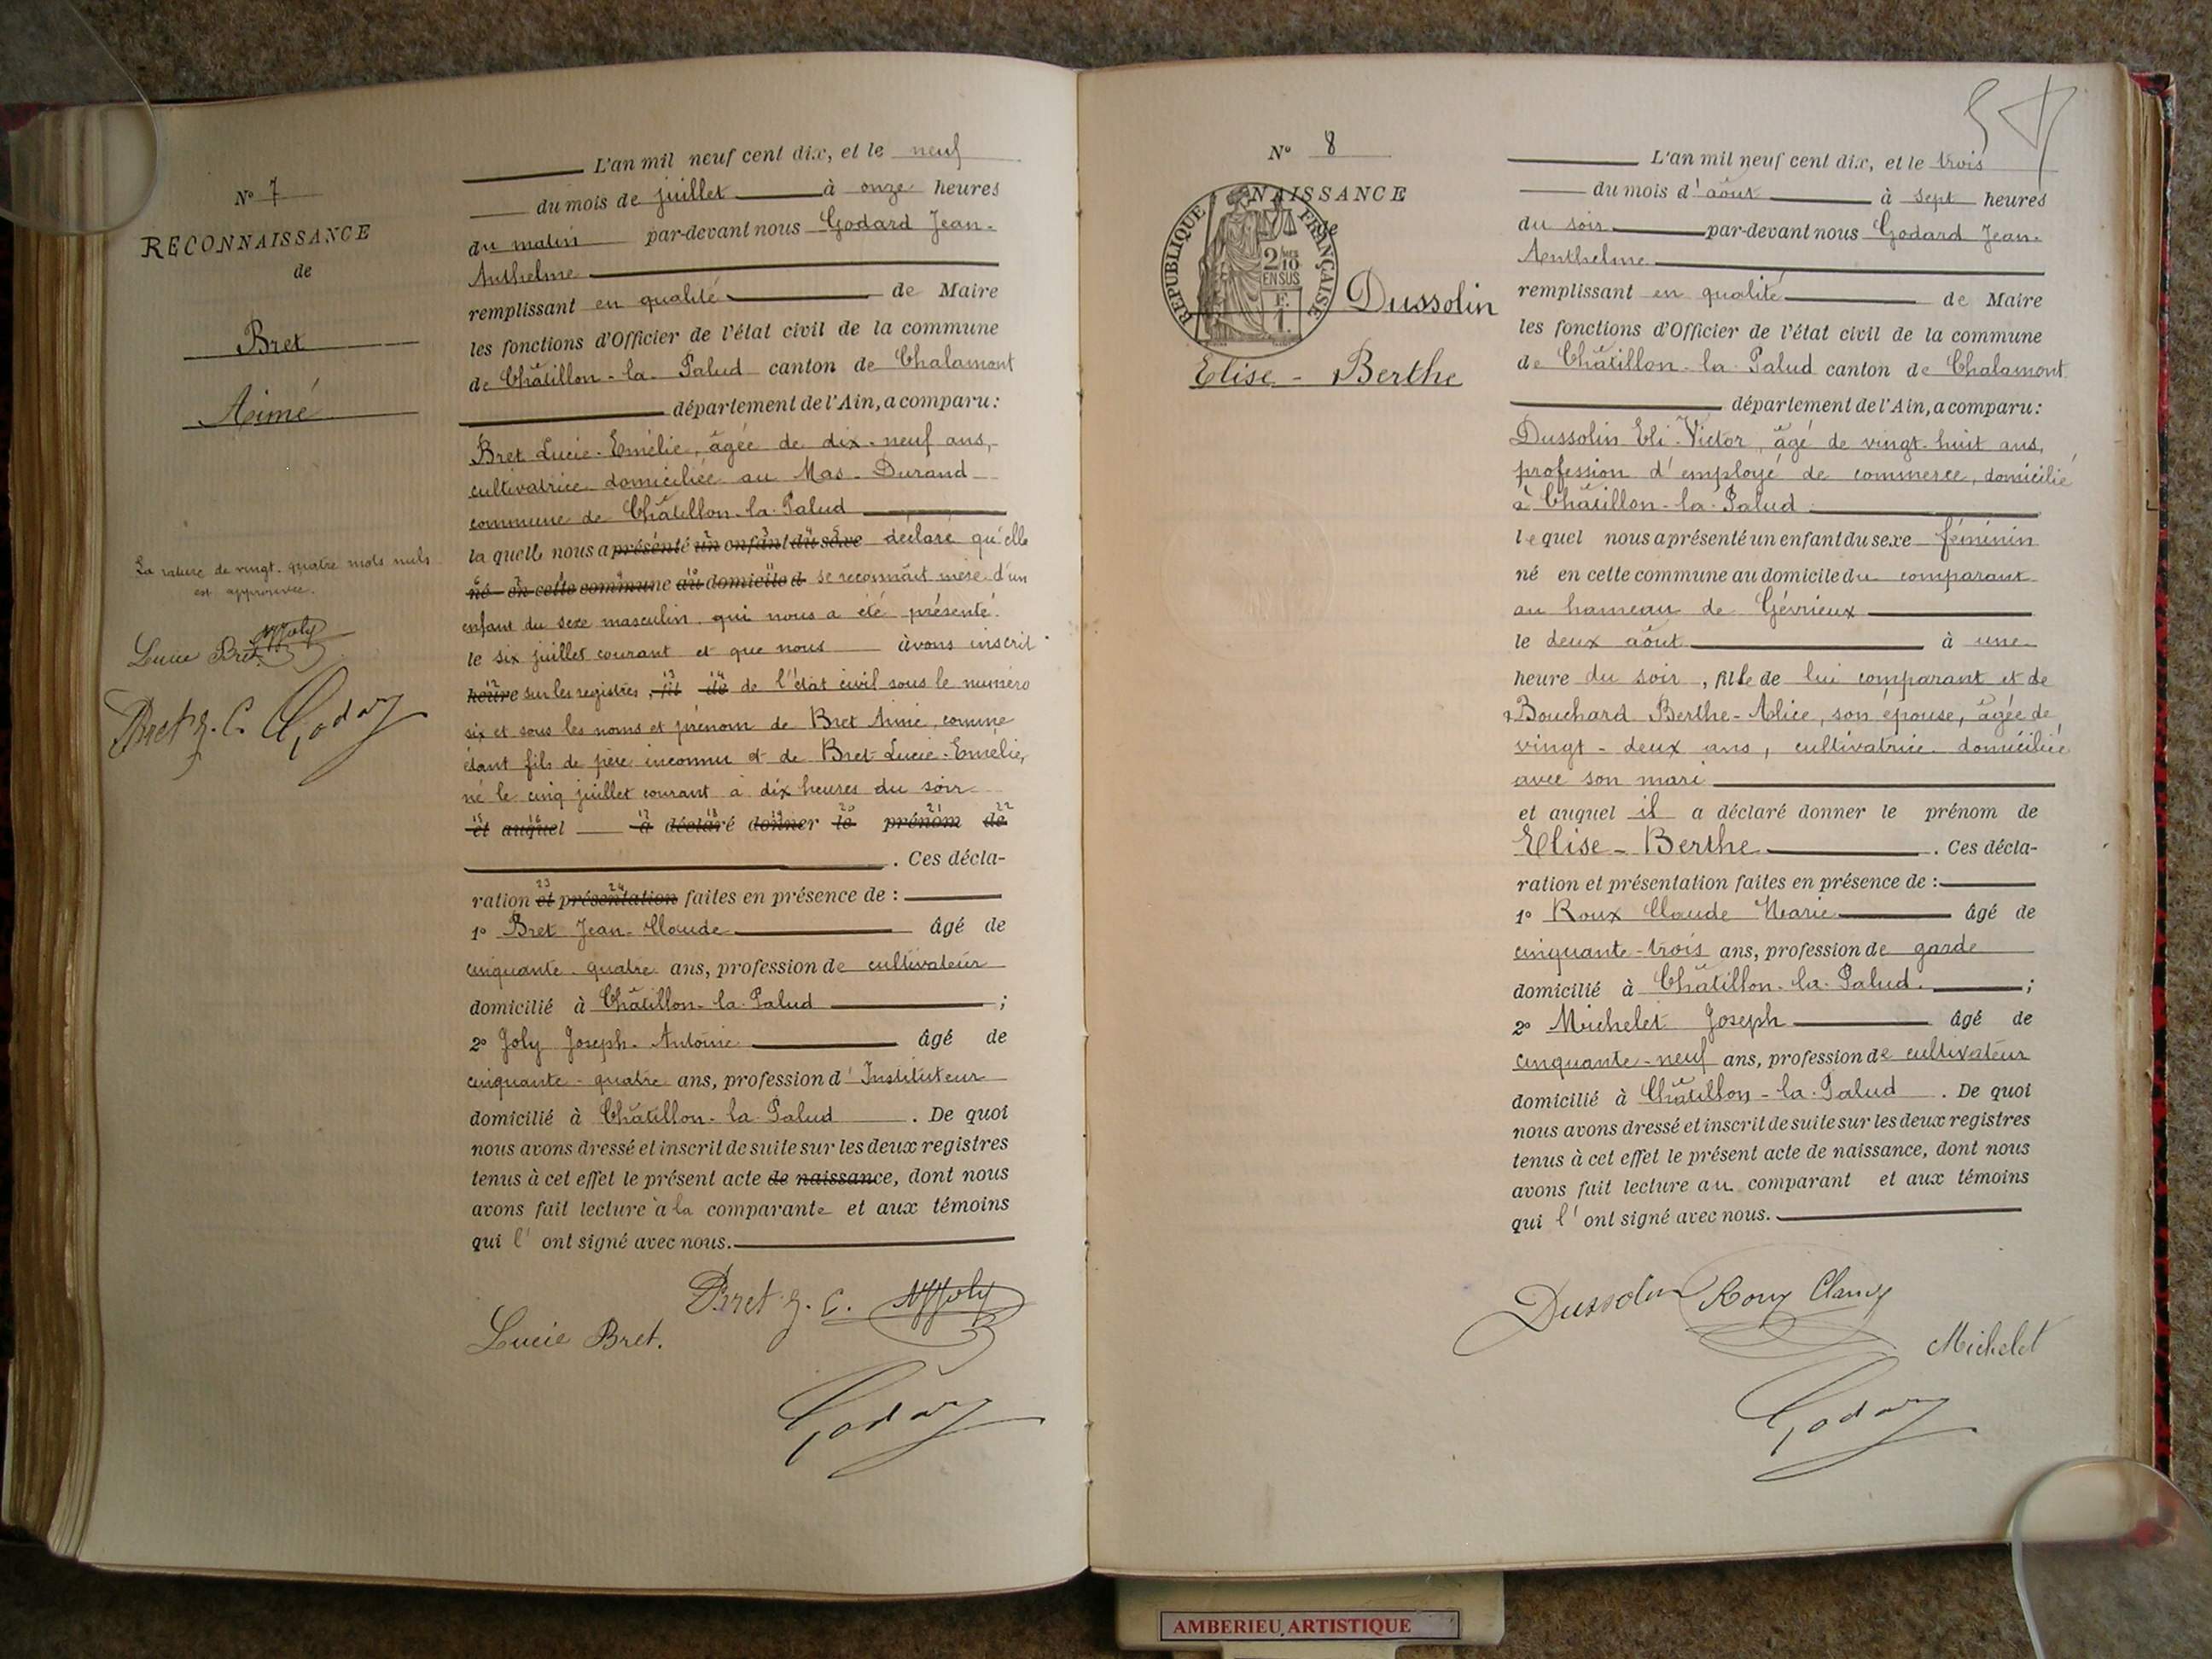 N° 7
RECONNAISSANCE
de
Bret
Aimé
La rature de vingt-quatre mots nuls
est approuvée.
Lucie Bret
Bret J. C. Godard
L'an mil neuf cent dix, et le neuf
du mois de juillet à onze heures
du matin par-devant nous Godard Jean-
Anthelme
remplissant en qualité de Maire
les fonctions d'Officier de l'état civil de la commune
de Châtillon-la-Palud canton de Chalamont
département de l'Ain, a comparu:
Bret Lucie-Emélie, âgée de dix-neuf ans,
cultivatrice domiciliée au Mas-Durand
commune de Châtillon-la-Palud
la quelle nous a présenté un enfant du sexe déclaré qu'elle
né en cette commune au domicile d se reconnaît mère d'un
enfant du sexe masculin qui nous a été présenté
le six juillet courant et que nous avons inscrit
heure sur les registres, fil de de l'état civil sous le numéro
six et sous les noms et prénom de Bret Aimé, comme
étant fils de père inconnu et de Bret Lucie-Emélie,
né le cinq juillet courant à dix heures du soir
et auquel a déclaré donner le prénom de
. Ces décla-
ration et présentation faites en présence de :
1° Bret Jean-Claude âgé de
cinquante-quatre ans, profession de cultivateur
domicilié à Châtillon-la-Palud ;
2° Joly Joseph-Antoine âgé de
cinquante-quatre ans, profession d'Instituteur
domicilié à Châtillon-la-Palud . De quoi
nous avons dressé et inscrit de suite sur les deux registres
tenus à cet effet le présent acte de naissance, dont nous
avons fait lecture à la comparante et aux témoins
qui l'ont signé avec nous.
Bret J. C. Joly
Lucie Bret.
Godard
N° 8
NAISSANCE
de
REPUBLIQUE FRANÇAISE
2/10
EN SUS
Dussolin
Elise-Berthe
L'an mil neuf cent dix, et le trois
du mois d'août à sept heures
du soir par-devant nous Godard Jean-
Anthelme
remplissant en qualité de Maire
les fonctions d'Officier de l'état civil de la commune
de Châtillon-la-Palud canton de Chalamont
département de l'Ain, a comparu:
Dussolin Eli-Victor, âgé de vingt-huit ans,
profession d'employé de commerce, domicilié
à Châtillon-la-Palud
lequel nous a présenté un enfant du sexe féminin
né en cette commune au domicile du comparant
au hameau de Gévrieux
le deux août à une
heure du soir, fille de lui comparant et de
Bouchard Berthe-Alice, son épouse, âgée de
vingt-deux ans, cultivatrice domiciliée
avec son mari
et auquel il a déclaré donner le prénom de
Elise-Berthe . Ces décla-
ration et présentation faites en présence de :
1° Roux Claude Marie âgé de
cinquante-trois ans, profession de garde
domicilié à Châtillon-la-Palud. ;
2° Michelet Joseph âgé de
cinquante-neuf ans, profession de cultivateur
domicilié à Châtillon-la-Palud . De quoi
nous avons dressé et inscrit de suite sur les deux registres
tenus à cet effet le présent acte de naissance, dont nous
avons fait lecture au comparant et aux témoins
qui l'ont signé avec nous.
Dussolin Roux Claude
Michelet
Godard
AMBERIEU ARTISTIQUE